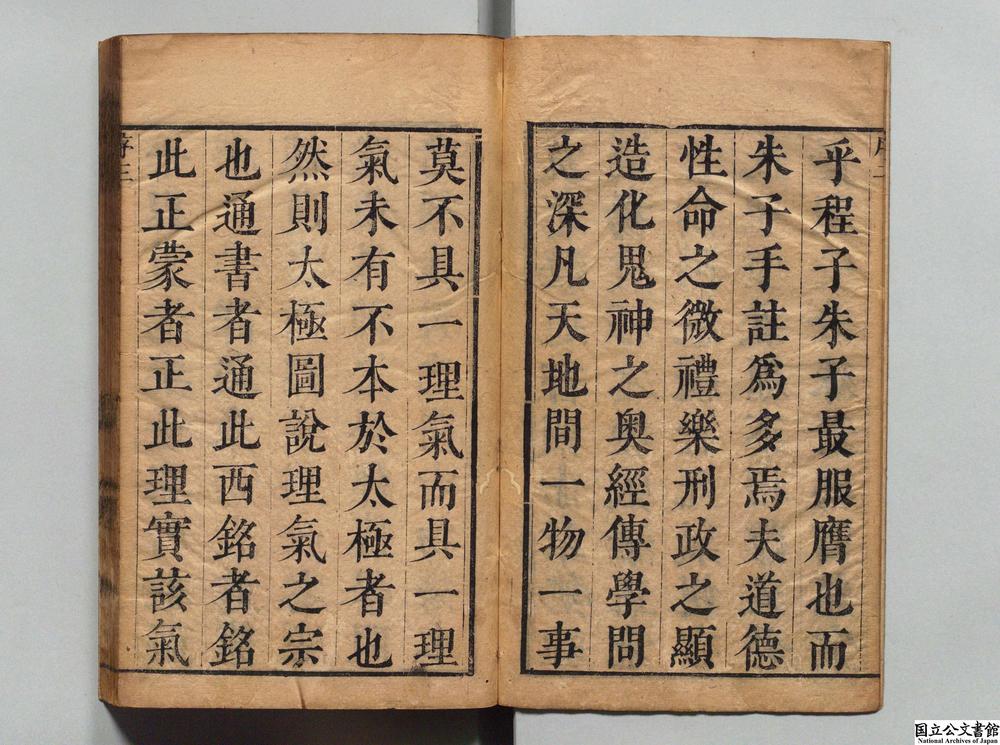 乎程子朱子最服膺也而
朱子手註爲多焉夫道德
性命之微禮樂刑政之顯
造化鬼神之奥經傳學問
之深凡天地間一物一事
莫不具一理氣而具一理
氣未有不本於太極者也
然則太極圖說理氣之宗
也通書者通此西銘者銘
此正蒙者正此理實該氣
序三
国立公文書館
National Archives of Japan